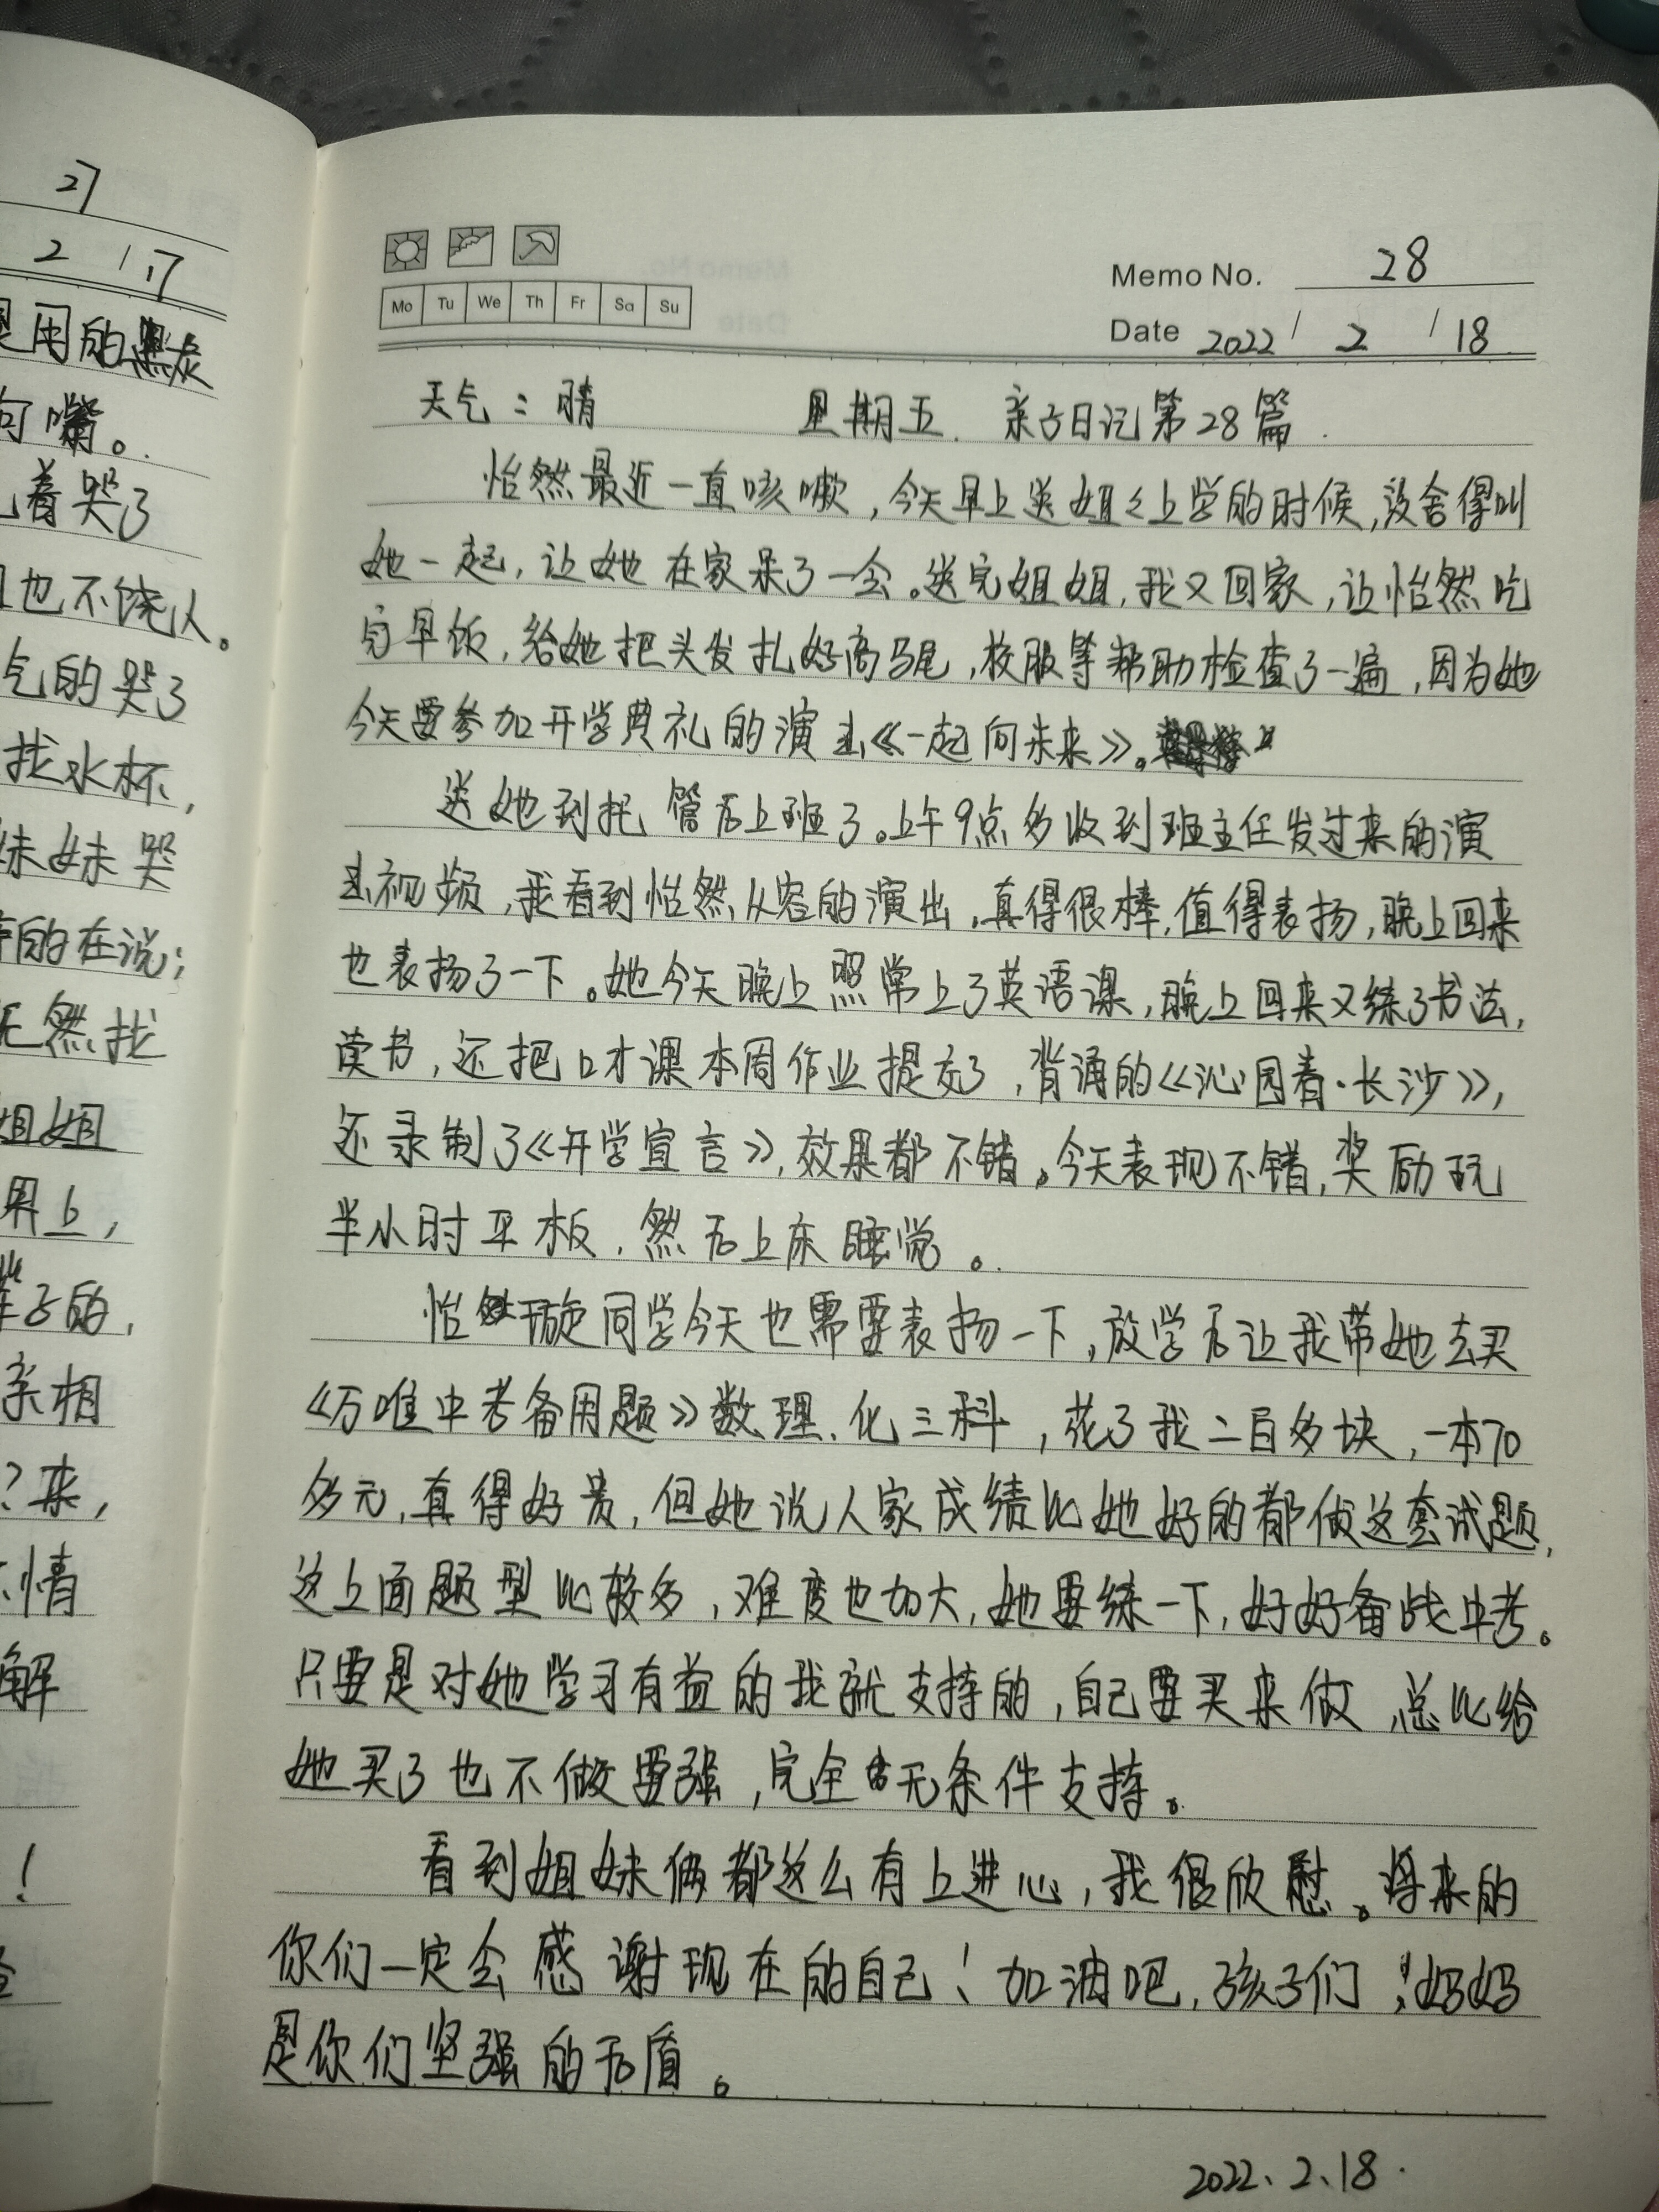 27
2 / 17
用的黑灰
嘴。
着哭了
也不饶人。
气的哭了
找水杯,
妹妹哭
的在说:
然找
姐姐
用上,
子的,
亲相
?来,
情
解
!
Memo No. 28
Mo Tu We Th Fr Sa Su
Date 2022 / 2 / 18
天气:晴 星期五. 亲子日记第28篇.
怡然最近一直咳嗽,今天早上送姐々上学的时候,没舍得叫
她一起,让她在家呆了一会。送完姐姐,我又回家,让怡然吃
完早饭,给她把头发扎好高马尾,校服等帮助检查了一遍,因为她
今天要参加开学典礼的演出《一起向未来》。
送她到托管后上班了。上午9点多收到班主任发过来的演
出视频,我看到怡然从容的演出,真得很棒,值得表扬,晚上回来
也表扬了一下。她今天晚上照常上了英语课,晚上回来又练了书法,
读书,还把口才课本周作业提交了,背诵的《沁园春·长沙》,
还录制了《开学宣言》,效果都不错。今天表现不错,奖励玩
半小时平板,然后上床睡觉。
怡璇同学今天也需要表扬一下,放学后让我带她去买
《万唯中考备用题》数、理、化三科,花了我二百多块,一本70
多元,真得好贵,但她说人家成绩比她好的都做这套试题,
这上面题型比较多,难度也加大,她要练一下,好好备战中考。
只要是对她学习有益的我就支持的,自己要买来做,总比给
她买了也不做要强,完全无条件支持。
看到姐妹俩都这么有上进心,我很欣慰。将来的
你们一定会感谢现在的自己!加油吧,孩子们!妈妈
是你们坚强的后盾。
2022、2、18.